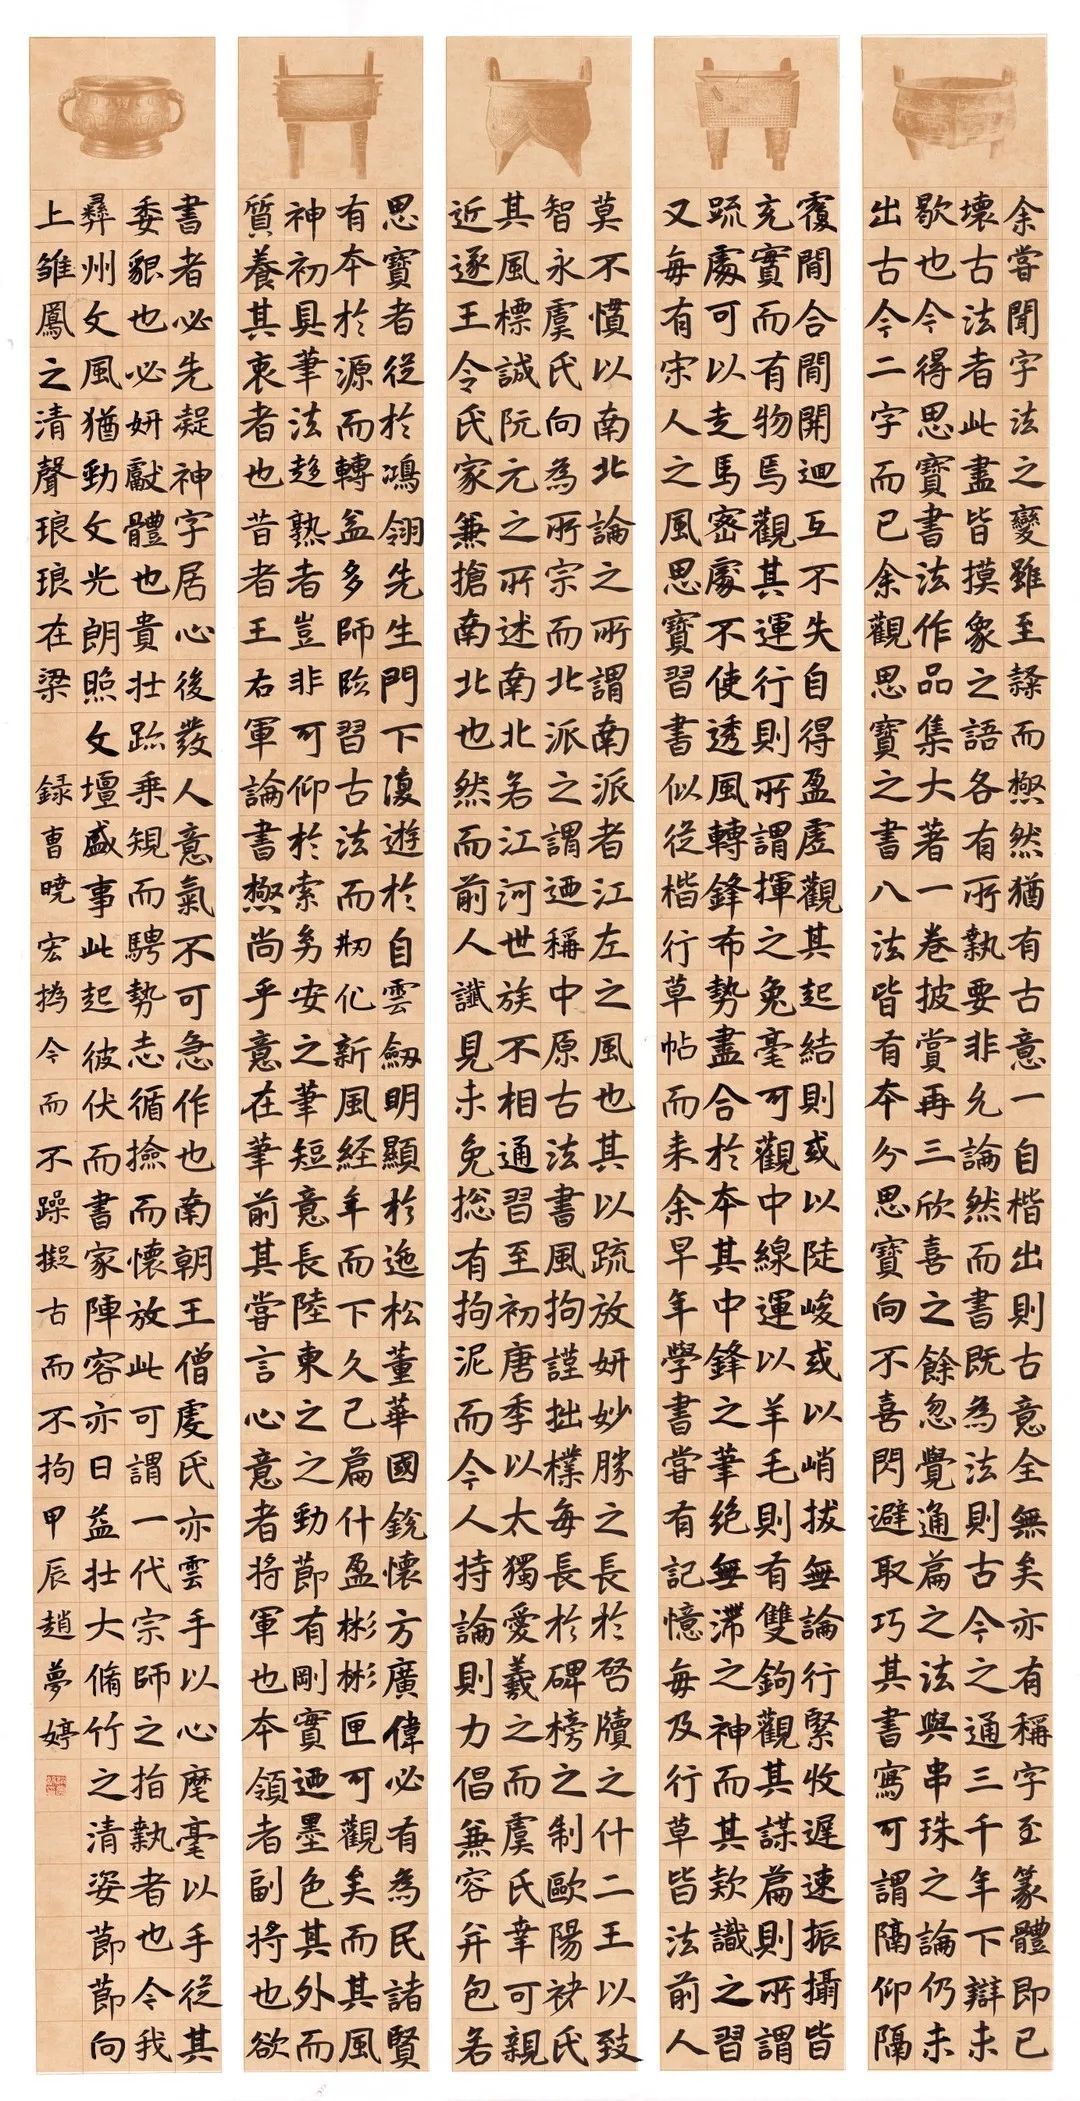 余嘗聞字法之變雖至隸而楙然猶有古意一自楷出則古意全無矣亦有稱字至篆體即已
壞古法者此盡皆摸象之語各有所執要非允論然而書既為法則古今之通三千年下辯未
歇也今得思寶書法作品集大著一卷披賞再三欣喜之餘忽覺通篇之法與串珠之論仍未
出古今二字而已余觀思寶之書八法皆有本分思寶向不喜閃避取巧其書寫可謂隔仰隔
覆間合間開迴互不失自得盈虛觀其起結則或以陡峻或以峭拔無論行緊收遲速振攝皆
充實而有物焉觀其運行則所謂揮之兔毫可觀中線運以羊毛則有雙鉤觀其謀篇則所謂
疏處可以走馬密處不使透風轉鋒布勢盡合於本其中鋒之筆絕無滯之神而其款識之習
又每有宋人之風思寶習書似從楷行草帖而来余早年學書嘗有記憶每及行草皆法前人
莫不慣以南北論之所謂南派者江左之風也其以疏放妍妙勝之長於啓牘之什二王以致
智永虞氏向為所宗而北派之謂迺稱中原古法書風拘謹拙樸每長於碑榜之制歐陽氏
其風標誠阮元之所述南北若江河世族不相通習至初唐季以太獨愛羲之而虞氏幸可親
近逐王令氏家兼搶南北也然而前人讖見未免総有拘泥而今人持論則力倡兼容并包若
思寶者從於鴻翎先生門下復遊於自雲劔明顯於迤松董華國銳懷方廣偉必有為民諸賢
有本於源而轉益多師臨習古法而刱化新風経年而下久已篇什盈彬彬匣可觀矣而其風
神初具筆法趍熟者豈非可仰於索努安之筆短意長陸東之之勁節有剛實迺墨色其外而
質養其衷者也昔者王右軍論書楙尚乎意在筆前其嘗言心意者將軍也本領者副将也欲
書者必先凝神字居心後發人意氣不可急作也南朝王僧虔氏亦雲手以心麾毫以手從其
委貌也必妍獻體也貴壯跡乗規而騁勢志循撿而懷放此可謂一代宗師之指執者也今我
彝州文風猶勁文光朗照文壇盛事此起彼伏而書家陣容亦日益壮大脩竹之清姿節節向
上雏鳳之清聲琅琅在梁
録曹曉宏撝今而不躁擬古而不拘甲辰趙夢婷